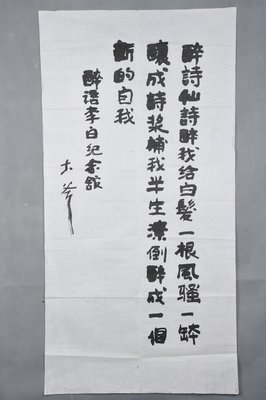 醉詩仙詩醉我给白髮一根風骚一缽
釀成詩浆補我半生潦倒醉成一個
新的自我
醉语李白纪念舘